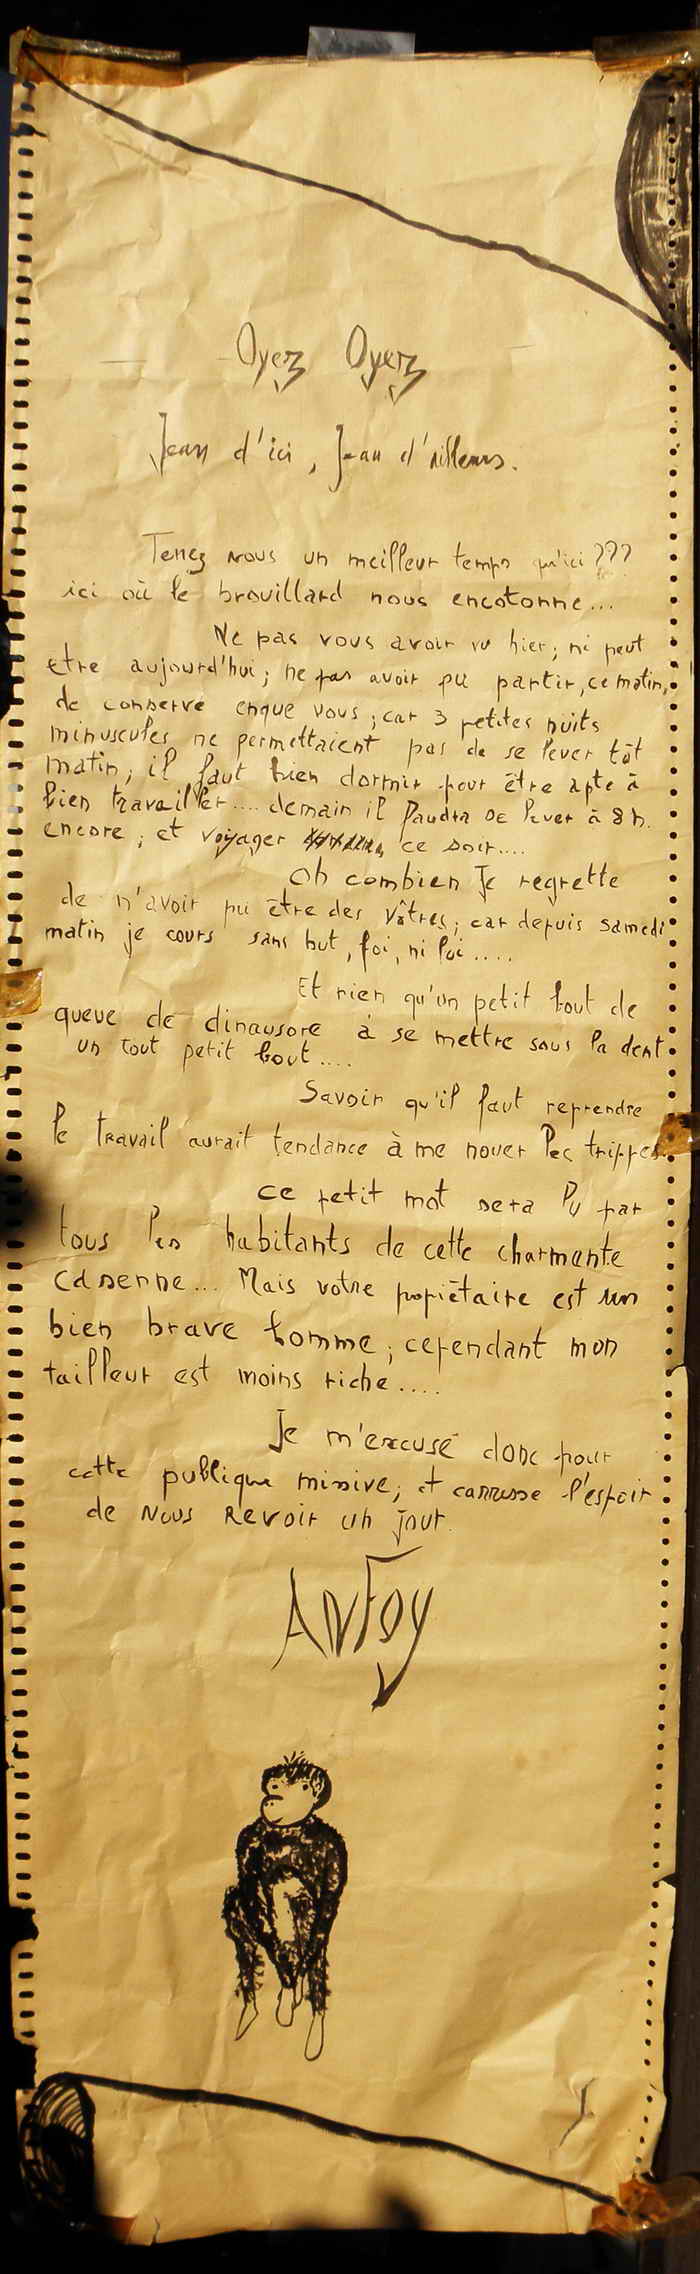 Oyez Oyez
Jean d'ici, Jean d'ailleurs.
Tenez nous un meilleur temps qu'ici ???
ici où le brouillard nous encotonne...
Ne pas vous avoir vu hier; ni peut
etre aujourd'hui; ne pas avoir pu partir, ce matin,
de conserve enque vous; car 3 petites nuits
minuscules ne permettaient pas de se lever tôt
matin; il faut bien dormir pour être apte à
bien travailler.... demain il faudra se lever à 8 h.
encore; et voyager ce soir....
Oh combien Je regrette
de n'avoir pu être des vôtres; car depuis samedi
matin je cours sans but, foi, ni loi....
Et rien qu'un petit bout de
queue de dinausore à se mettre sous la dent
un tout petit bout....
Savoir qu'il faut reprendre
le travail aurait tendance à me nouer les trippes.
ce petit mot sera lu par
tous les habitants de cette charmante
caserne... Mais votre propiétaire est un
bien brave homme; cependant mon
tailleur est moins riche....
Je m'excuse donc pour
cette publique missive; et carresse l'espoir
de nous revoir un jour.
Antoy